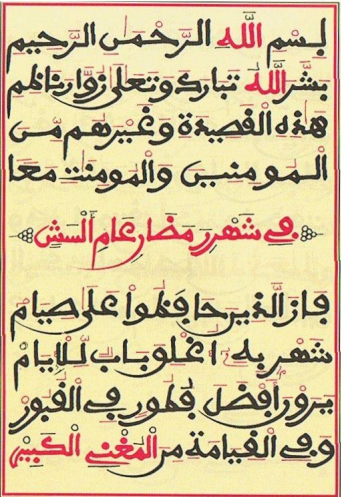 بِسْمِ اللَّهِ الرَّحْمَٰنِ الرَّحِيمِ
بَشَّرَ اللَّهُ تَبَارَكَ وَتَعَالَىٰ زُوَّارَ نَاظِمِ
هَٰذِهِ الْقَصِيدَةِ وَغَيْرَهُم مِّنَ
الْمُومِنِينَ وَالْمُومِنَٰتِ مَعًا
فِي شَهْرِ رَمَضَانَ عَامَ
فَازَ الَّذِينَ حَافَظُوا عَلَىٰ صِيَامْ
شَهْرٍ بِهِ أُغْلِقَ بَابٌ لِلْإِيَّامْ
يَرَوْنَ أَفْضَلَ فُطُورٍ فِي الْقُبُورْ
وَفِي الْقِيَامَةِ مِنَ الْمُغْنِي الْكَبِيرْ